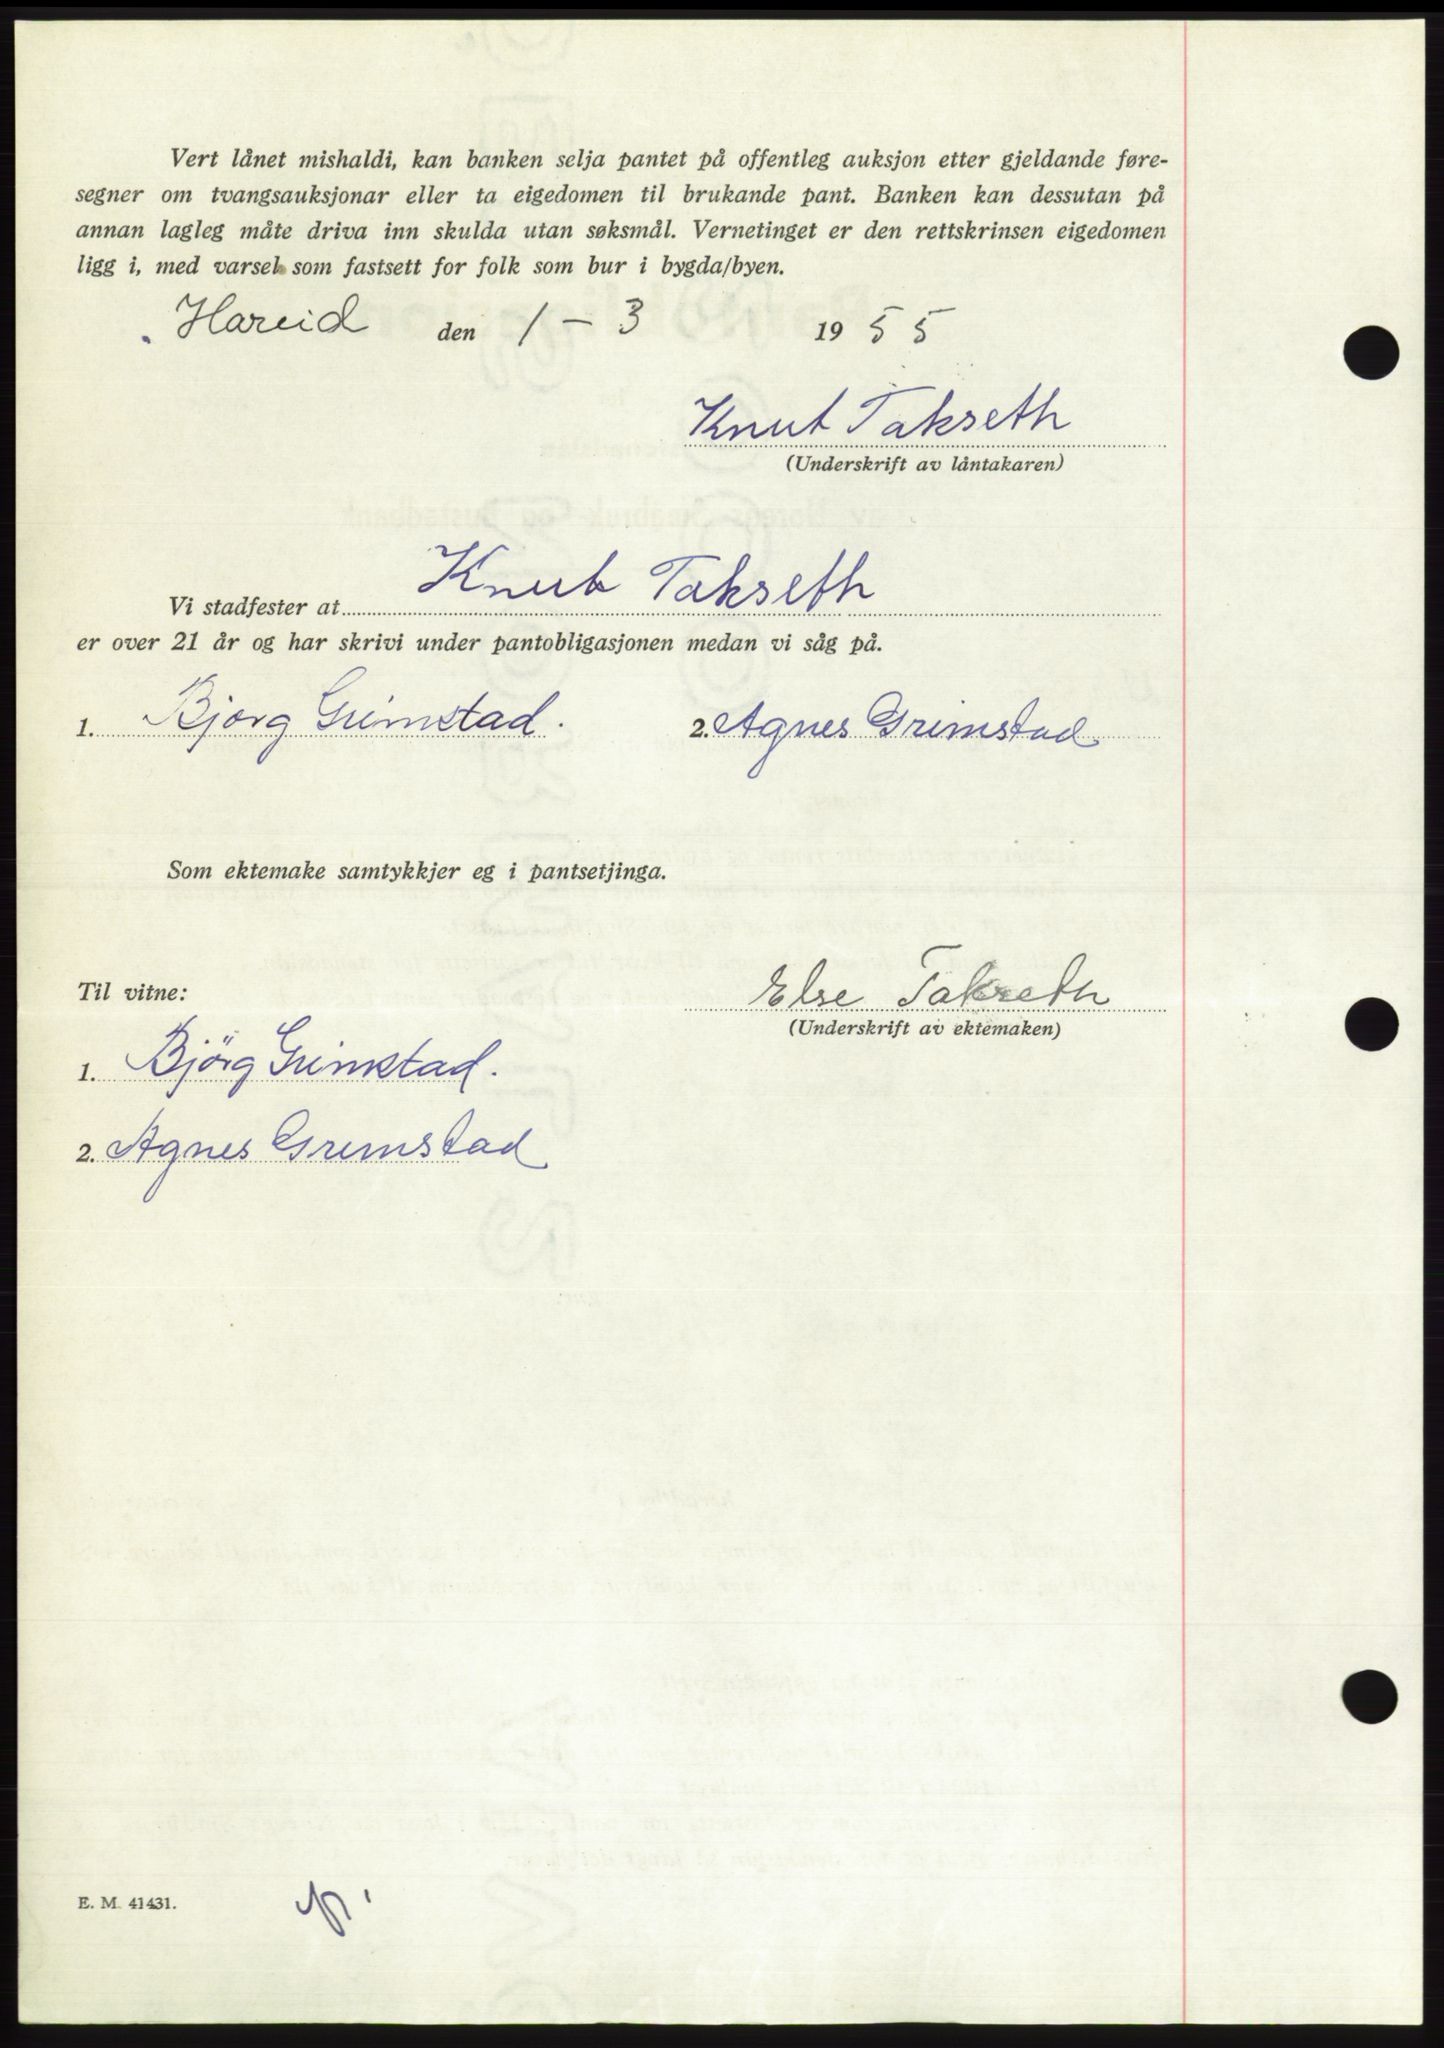 Vert lånet mishaldi, kan banken selja pantet på offentleg auksjon etter gjeldande føre-
segner om tvangsauksjonar eller ta eigedomen til brukande pant. Banken kan dessutan på
annan lagleg måte driva inn skulda utan søksmål. Vernetinget er den rettskrinsen eigedomen
ligg i, med varsel som fastsett for folk som bur i bygda/byen.
Hareid den 1 – 3 19 55
Knut Takseth
(Underskrift av låntakaren)
Vi stadfester at Knut Takseth
er over 21 år og har skrivi under pantobligasjonen medan vi såg på.
1. Bjorg Grimstad. 2. Agnes Grimstad
Som ektemake samtykkjer eg i pantsetjinga.
Til vitne: Else Takseth
(Underskrift av ektemaken)
1. Björg Grimstad.
2. Agnes Grimstad
E. M. 41431.